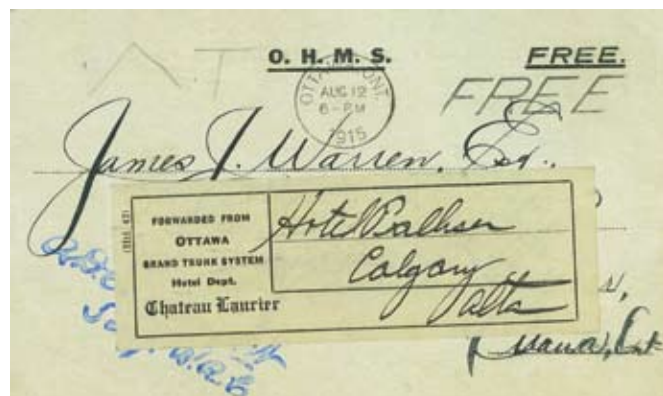 O. H. M. S.
FREE.
OTTAWA, ONT.
AUG 12
6 - PM
1915
FREE
James J. Warren, Esq.,
FORWARDED FROM
OTTAWA
GRAND TRUNK SYSTEM
Hotel Dept.
Chateau Laurier
Hotel Palliser
Calgary
Alta
Ottawa, Ont